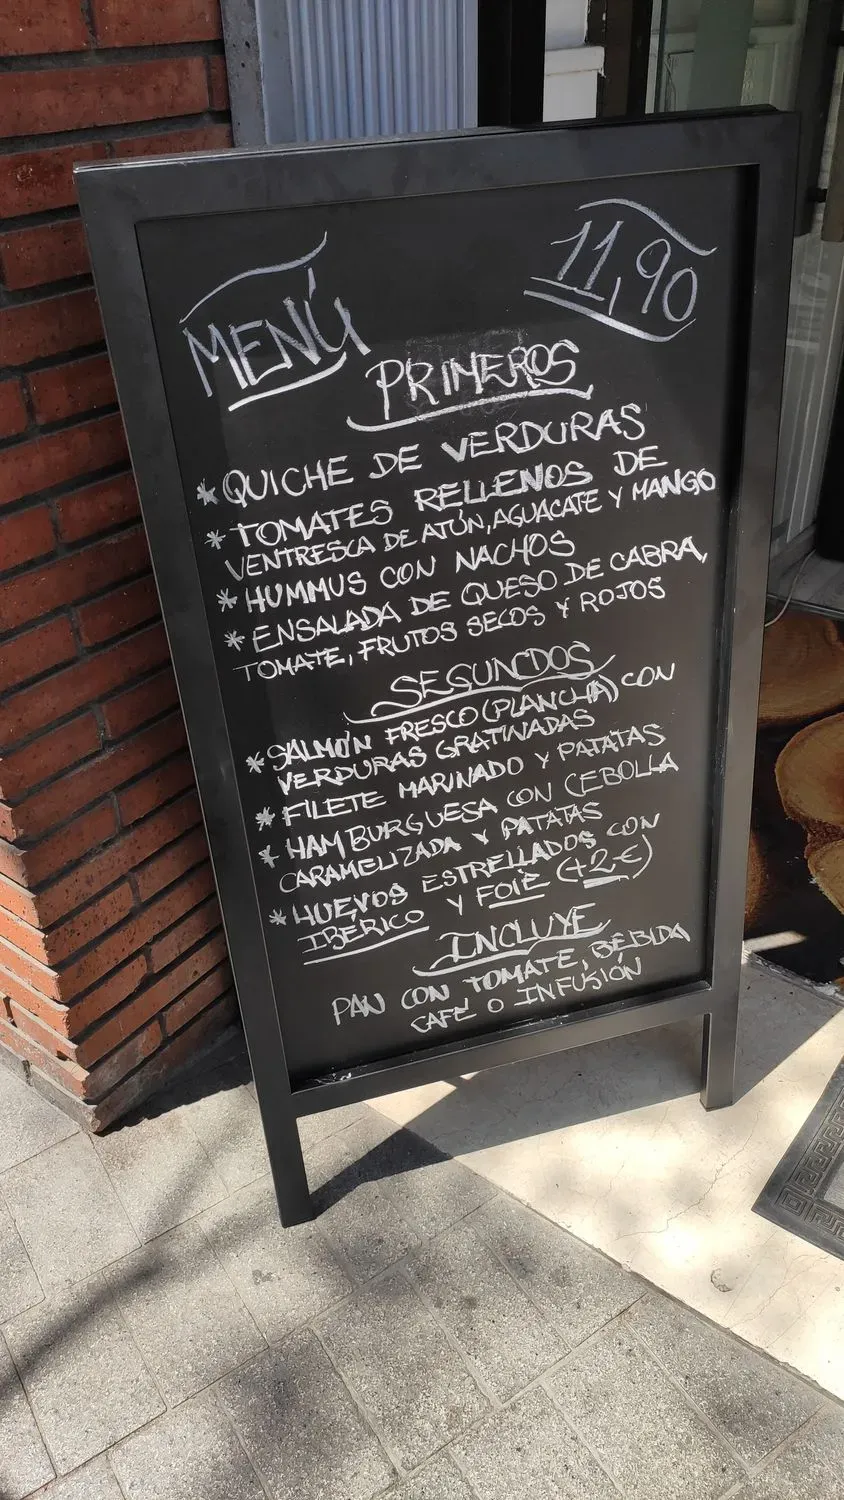 MENÚ
11,90
PRIMEROS
* QUICHE DE VERDURAS
* TOMATES RELLENOS DE
VENTRESCA DE ATÚN, AGUACATE Y MANGO
* HUMMUS CON NACHOS
* ENSALADA DE QUESO DE CABRA,
TOMATE, FRUTOS SECOS Y ROJOS
SEGUNDOS
* SALMÓN FRESCO (PLANCHA) CON
VERDURAS GRATINADAS
* FILETE MARINADO Y PATATAS
* HAMBURGUESA CON CEBOLLA
CARAMELIZADA Y PATATAS
* HUEVOS ESTRELLADOS CON
IBÉRICO Y FOIE (+2€)
INCLUYE
PAN CON TOMATE, BEBIDA
CAFÉ O INFUSIÓN